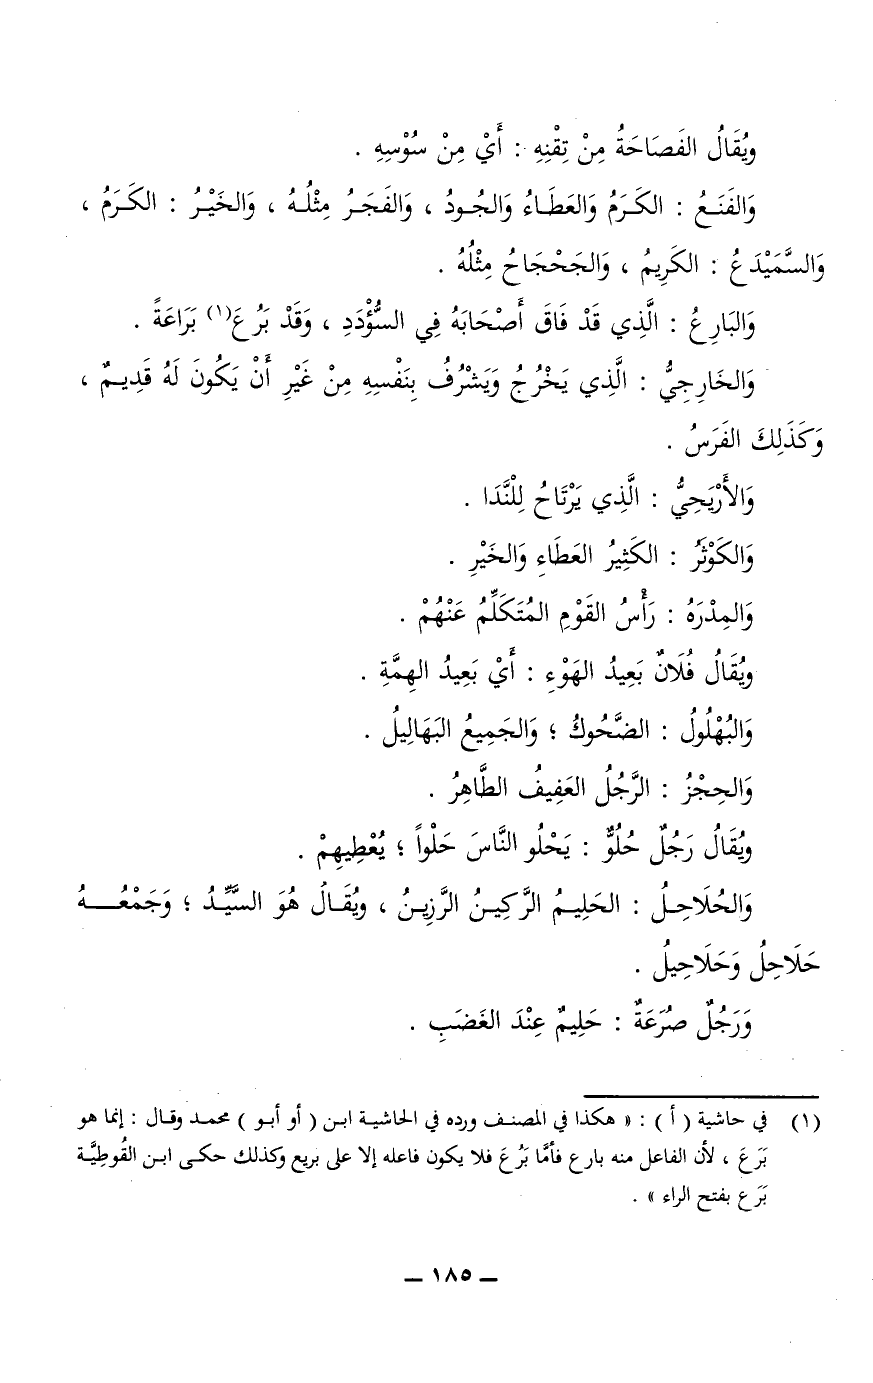 ويُقَالُ الفَصَاحَةُ مِنْ تِقْنِهِ : أَيْ مِنْ سُوْسِهِ .
وَالفَنَعُ : الكَرَمُ وَالعَطَاءُ وَالجُودُ ، وَالفَجَرُ مِثْلُهُ ، وَالخَيْرُ : الكَرَمُ ،
وَالسَّمَيْدَعُ : الكَرِيمُ ، وَالجَحْجَاحُ مِثْلُهُ .
وَالبَارِعُ : الَّذِي قَدْ فَاقَ أَصْحَابَهُ فِي السُّؤْدَدِ ، وَقَدْ بَرُعَ(١) بَرَاعَةً .
وَالخَارِجِيُّ : الَّذِي يَخْرُجُ وَيَشْرُفُ بِنَفْسِهِ مِنْ غَيْرِ أَنْ يَكُونَ لَهُ قَدِيمٌ ،
وَكَذَلِكَ الفَرَسُ .
وَالأَرْيَحِيُّ : الَّذِي يَرْتَاحُ لِلْنَّدَا .
وَالكَوْثَرُ : الكَثِيرُ العَطَاءِ وَالخَيْرِ .
وَالمِدْرَهُ : رَأْسُ القَوْمِ المُتَكَلِّمُ عَنْهُمْ .
ويُقَالُ فُلَانٌ بَعِيدُ الهَوْءِ : أَيْ بَعِيدُ الهِمَّةِ .
وَالبُهْلُولُ : الضَّحُوكُ ؛ وَالجَمِيعُ البَهَالِيلُ .
وَالحِجْزُ : الرَّجُلُ العَفِيفُ الطَّاهِرُ .
ويُقَالُ رَجُلٌ حُلُوٌّ : يَحْلُو النَّاسَ حَلْواً ؛ يُعْطِيهِمْ .
وَالحُلَاحِلُ : الحَلِيمُ الرَّكِينُ الرَّزِينُ ، ويُقَالُ هُوَ السَّيِّدُ ؛ وَجَمْعُهُ
حَلَاحِلُ وَحَلَاحِيلُ .
وَرَجُلٌ صُرَعَةٌ : حَلِيمٌ عِنْدَ الغَضَبِ .
(١) في حاشية ( أ ) : « هكذا في المصنف ورده في الحاشية ابن ( أو أبو ) محمد وقال : إنما هو
بَرَعَ ، لأن الفاعل منه بارع فأمَّا بَرُعَ فلا يكون فاعله إلا على بريع وكذلك حكى ابن القُوطِيَّة
بَرَع بفتح الراء » .
ــ ١٨٥ ــ